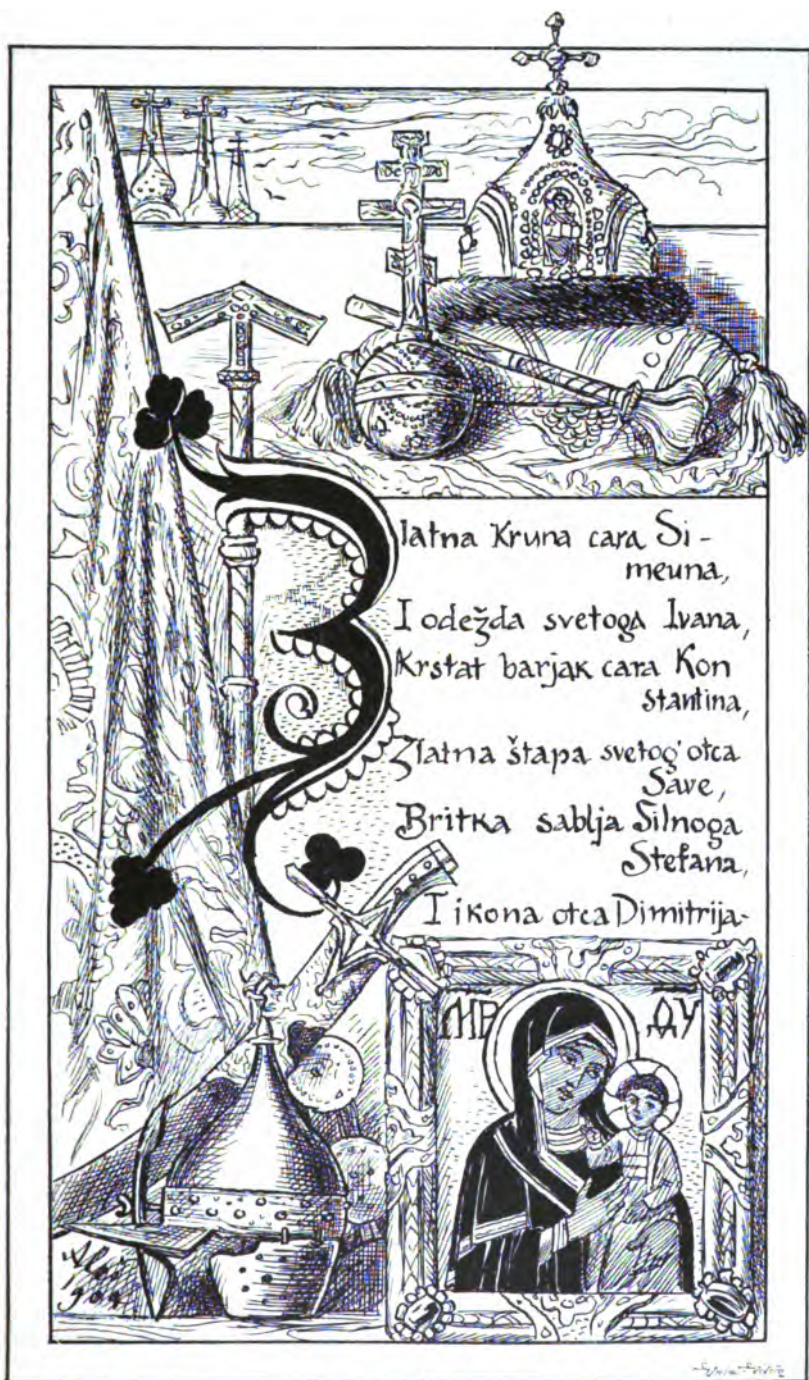 Zlatna Kruna cara Si-
meuna,
I odežda svetoga Ivana,
Krstat barjak cara Kon
stantina,
Zlatna štapa svetog' otca
Save,
Britka sablja Silnoga
Stefana,
I ikona otca Dimitrija-